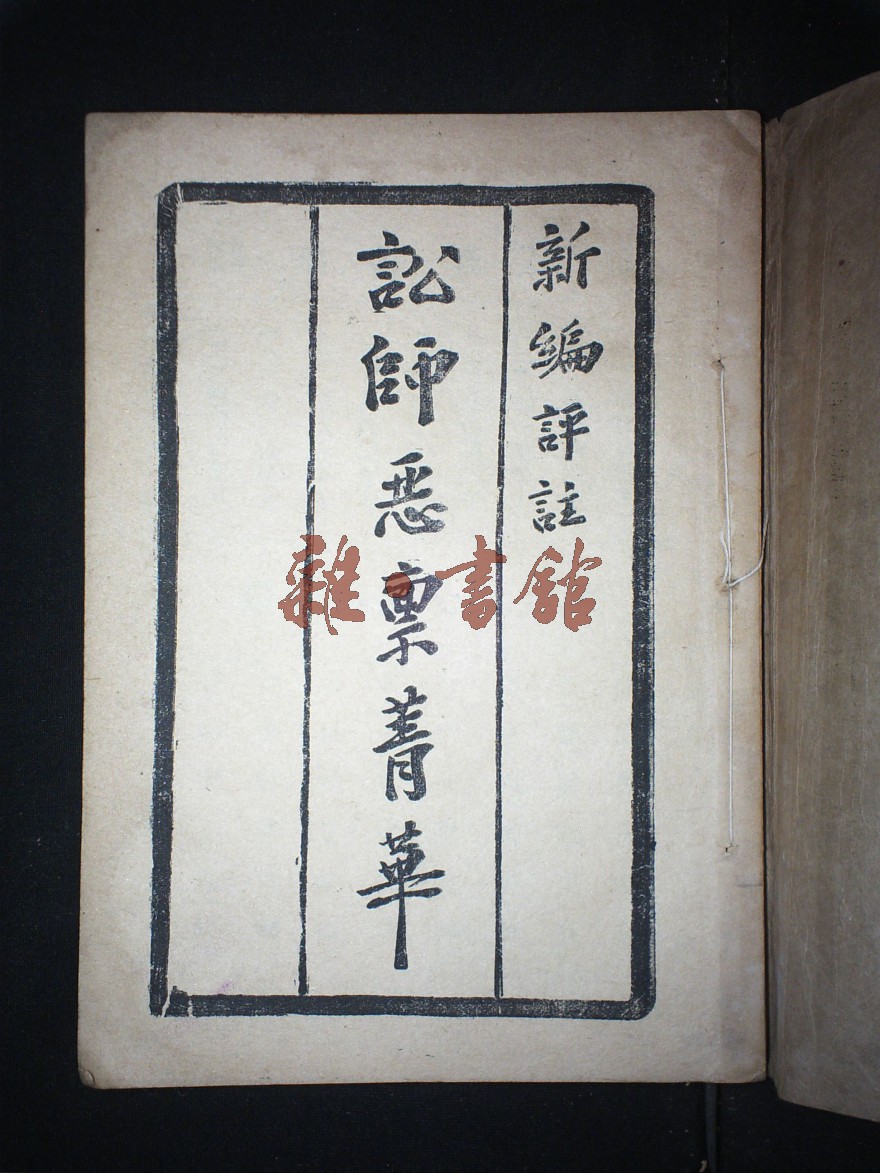 新編評註
訟師惡禀菁華
雜·書館